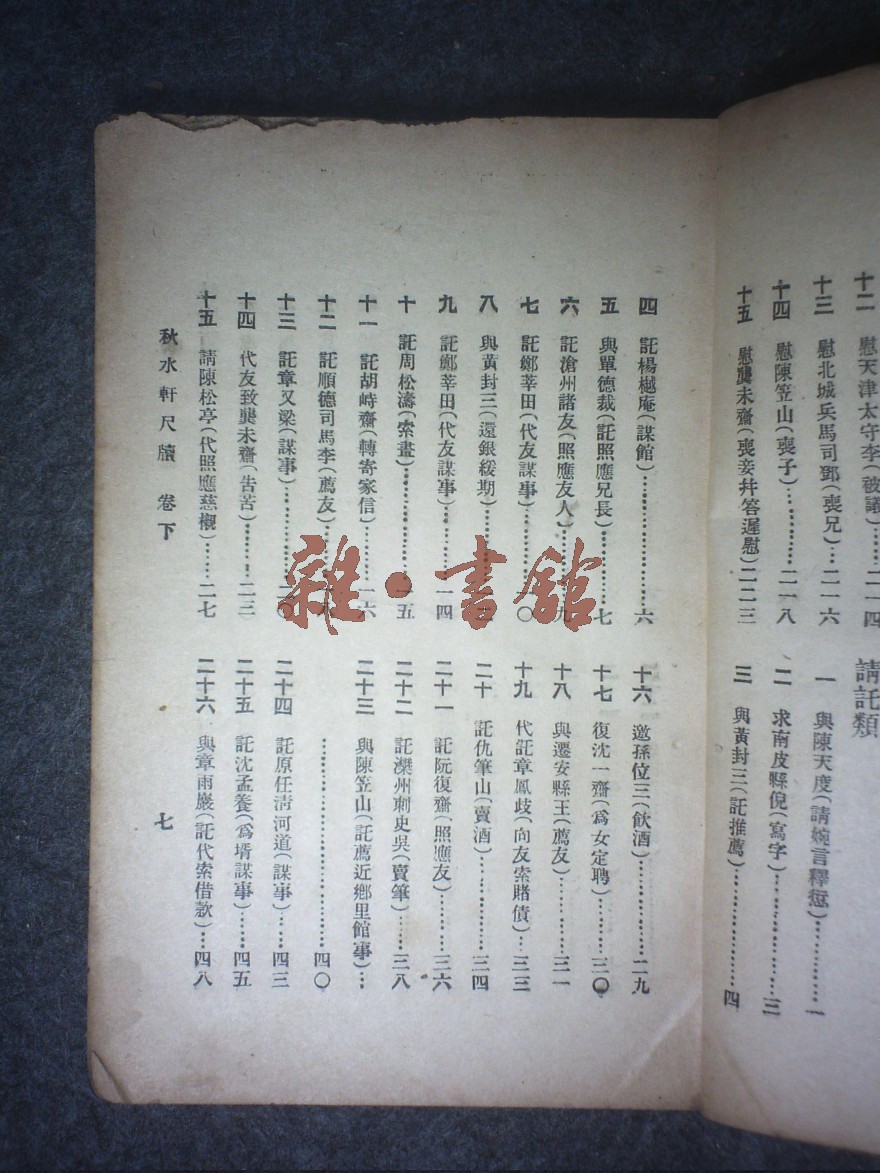 十二　慰天津太守李（被議）……二一四
十三　慰北城兵馬司鄧（喪兄）……二一六
十四　慰陳笠山（喪子）………二一八
十五　慰龔未齋（喪妾幷答遲慰）二二三
請託類
一　與陳天度（請婉言釋愆）…………一
二　求南皮縣倪（寫字）……………三
三　與黃封三（託推薦）……………四
四　託楊樾庵（謀館）……………六
五　與單德裁（託照應兄長）………七
六　託滄州諸友（照應友人）………九
七　託鄭莘田（代友謀事）………一〇
八　與黃封三（還銀緩期）………
九　託鄭莘田（代友謀事）………一四
十　託周松濤（索畫）…………一五
十一　託胡峙齋（轉寄家信）………一六
十二　託順德司馬李（薦友）………
十三　託章又梁（謀事）…………二〇
十四　代友致龔未齋（告苦）………二三
十五　請陳松亭（代照應慈櫬）……二七
十六　邀孫位三（飲酒）……………二九
十七　復沈一齋（爲女定聘）………三〇
十八　與遷安縣王（薦友）…………三一
十九　代託章鳳歧（向友索賭債）…三三
二十　託仇筆山（賣酒）……………三四
二十一　託阮復齋（照應友）………三六
二十二　託灤州刺史吳（賣筆）……三八
二十三　與陳笠山（託薦近鄉里館事）…
……………………四〇
二十四　託原任淸河道（謀事）……四三
二十五　託沈孟養（爲壻謀事）……四五
二十六　與章雨巖（託代索借款）…四八
秋水軒尺牘　卷下
七
雜·書館